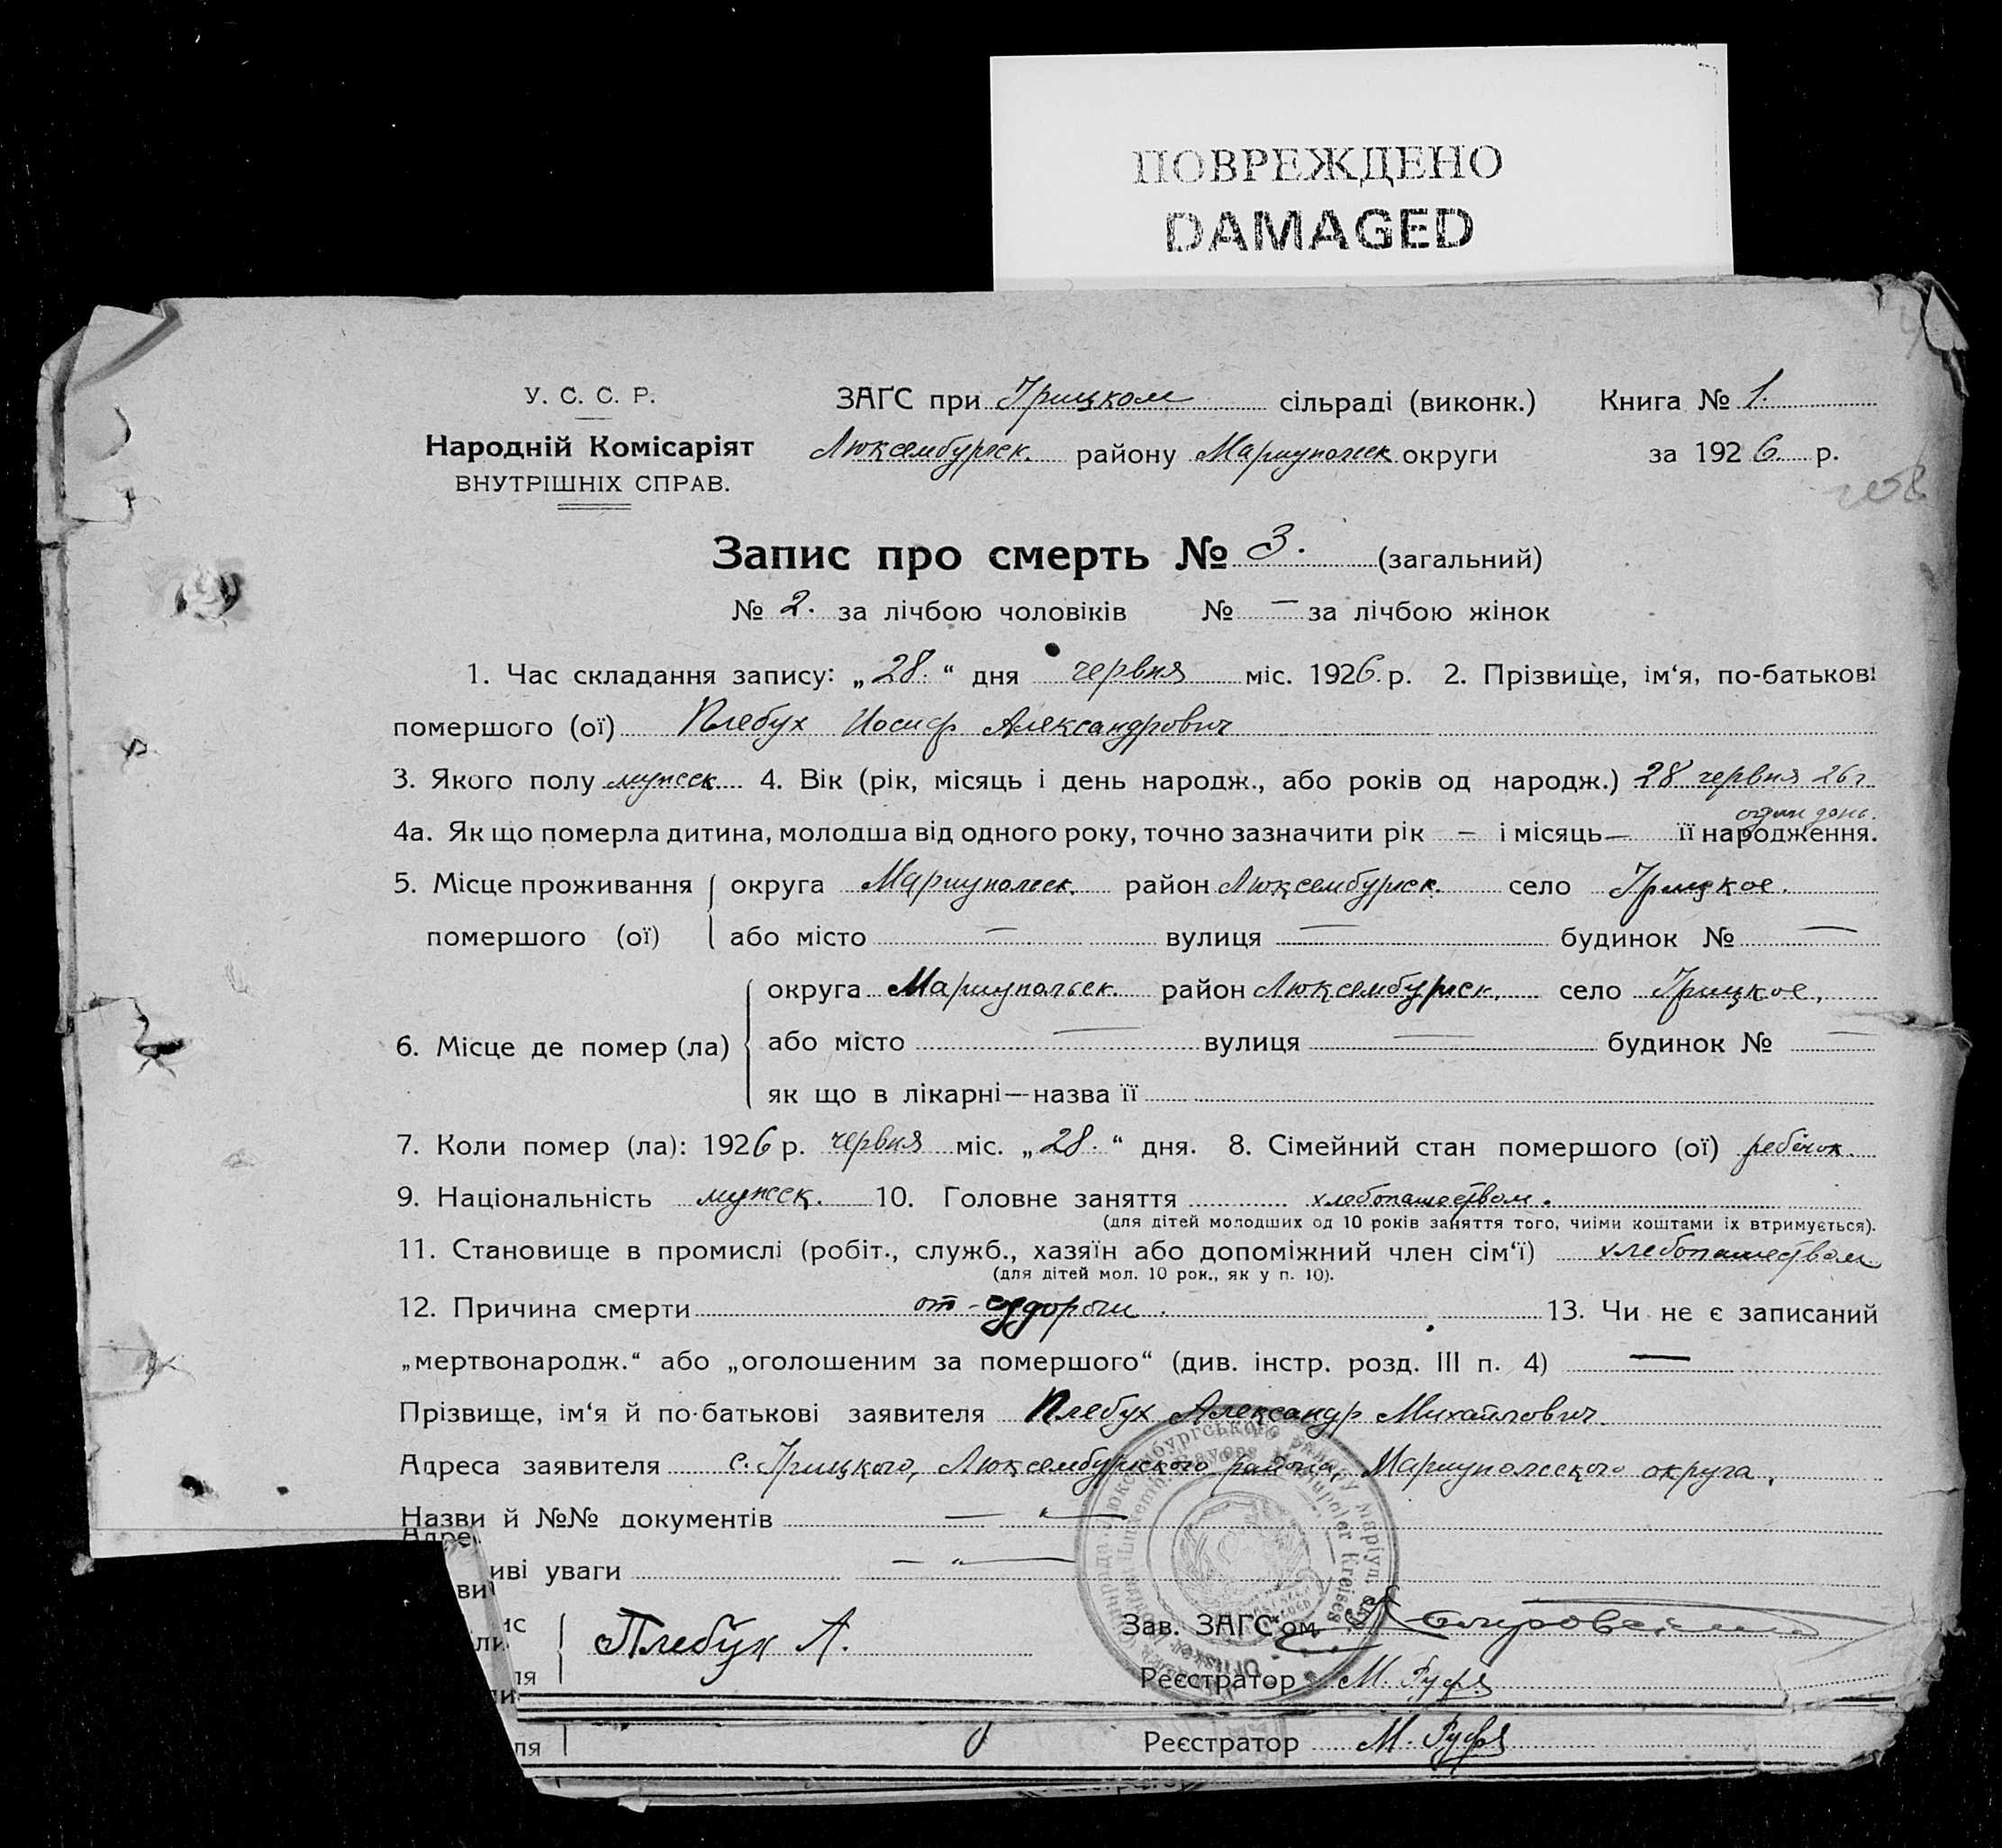 ПОВРЕЖДЕНО
DAMAGED
У. С. С. Р.
Народній Комісаріят
ВНУТРІШНІХ СПРАВ.
ЗАГС при Грицком сільраді (виконк.) Книга № 1.
Люксембургск. району Мариупольск округи за 1926. р.
Запис про смерть № 3. (загальний)
№ 2. за лічбою чоловіків № — за лічбою жінок
1. Час складання запису: „28.“ дня червня міс. 1926. р. 2. Прізвище, ім‘я, по-батькові
помершого (ої) Плебух Иосиф Александрович
3. Якого полу мужеск. 4. Вік (рік, місяць і день народж., або років од народж.) 28 червня 26 г.
один день.
4а. Як що померла дитина, молодша від одного року, точно зазначити рік – і місяць — її народження.
5. Місце проживання округа Мариупольск. район Люксембургск. село Грицкое.
помершого (ої) або місто — вулиця — будинок № —
округа Мариупольск. район Люксембургск. село Грицкое,
6. Місце де помер (ла) або місто — вулиця — будинок № —
як що в лікарні—назва її
7. Коли помер (ла): 1926 р. червня міс. „28.“ дня. 8. Сімейний стан помершого (ої) ребёнок.
9. Національність мужеск. 10. Головне заняття хлебопашеством.
(для дітей молодших од 10 років заняття того, чиїми коштами їх втримується).
11. Становище в промислі (робіт., служб., хазяїн або допоміжний член сім‘ї) хлебопашеством
(для дітей мол. 10 рок., як у п. 10).
12. Причина смерти от-судороги. 13. Чи не є записаний
„мертвонародж.“ або „оголошеним за помершого“ (див. інстр. розд. III п. 4) —
Прізвище, ім‘я й по-батькові заявителя Плебух Александр Михайлович.
Адреса заявителя с. Грицкого, Люксембургского района, Мариупольского округа,
Назви й №№ документів — „ —
Адре
иві уваги — „ —
ви
Плебух А. Зав. ЗАГС‘ом
Реєстратор М. Руф
ля Реєстратор М. Руф